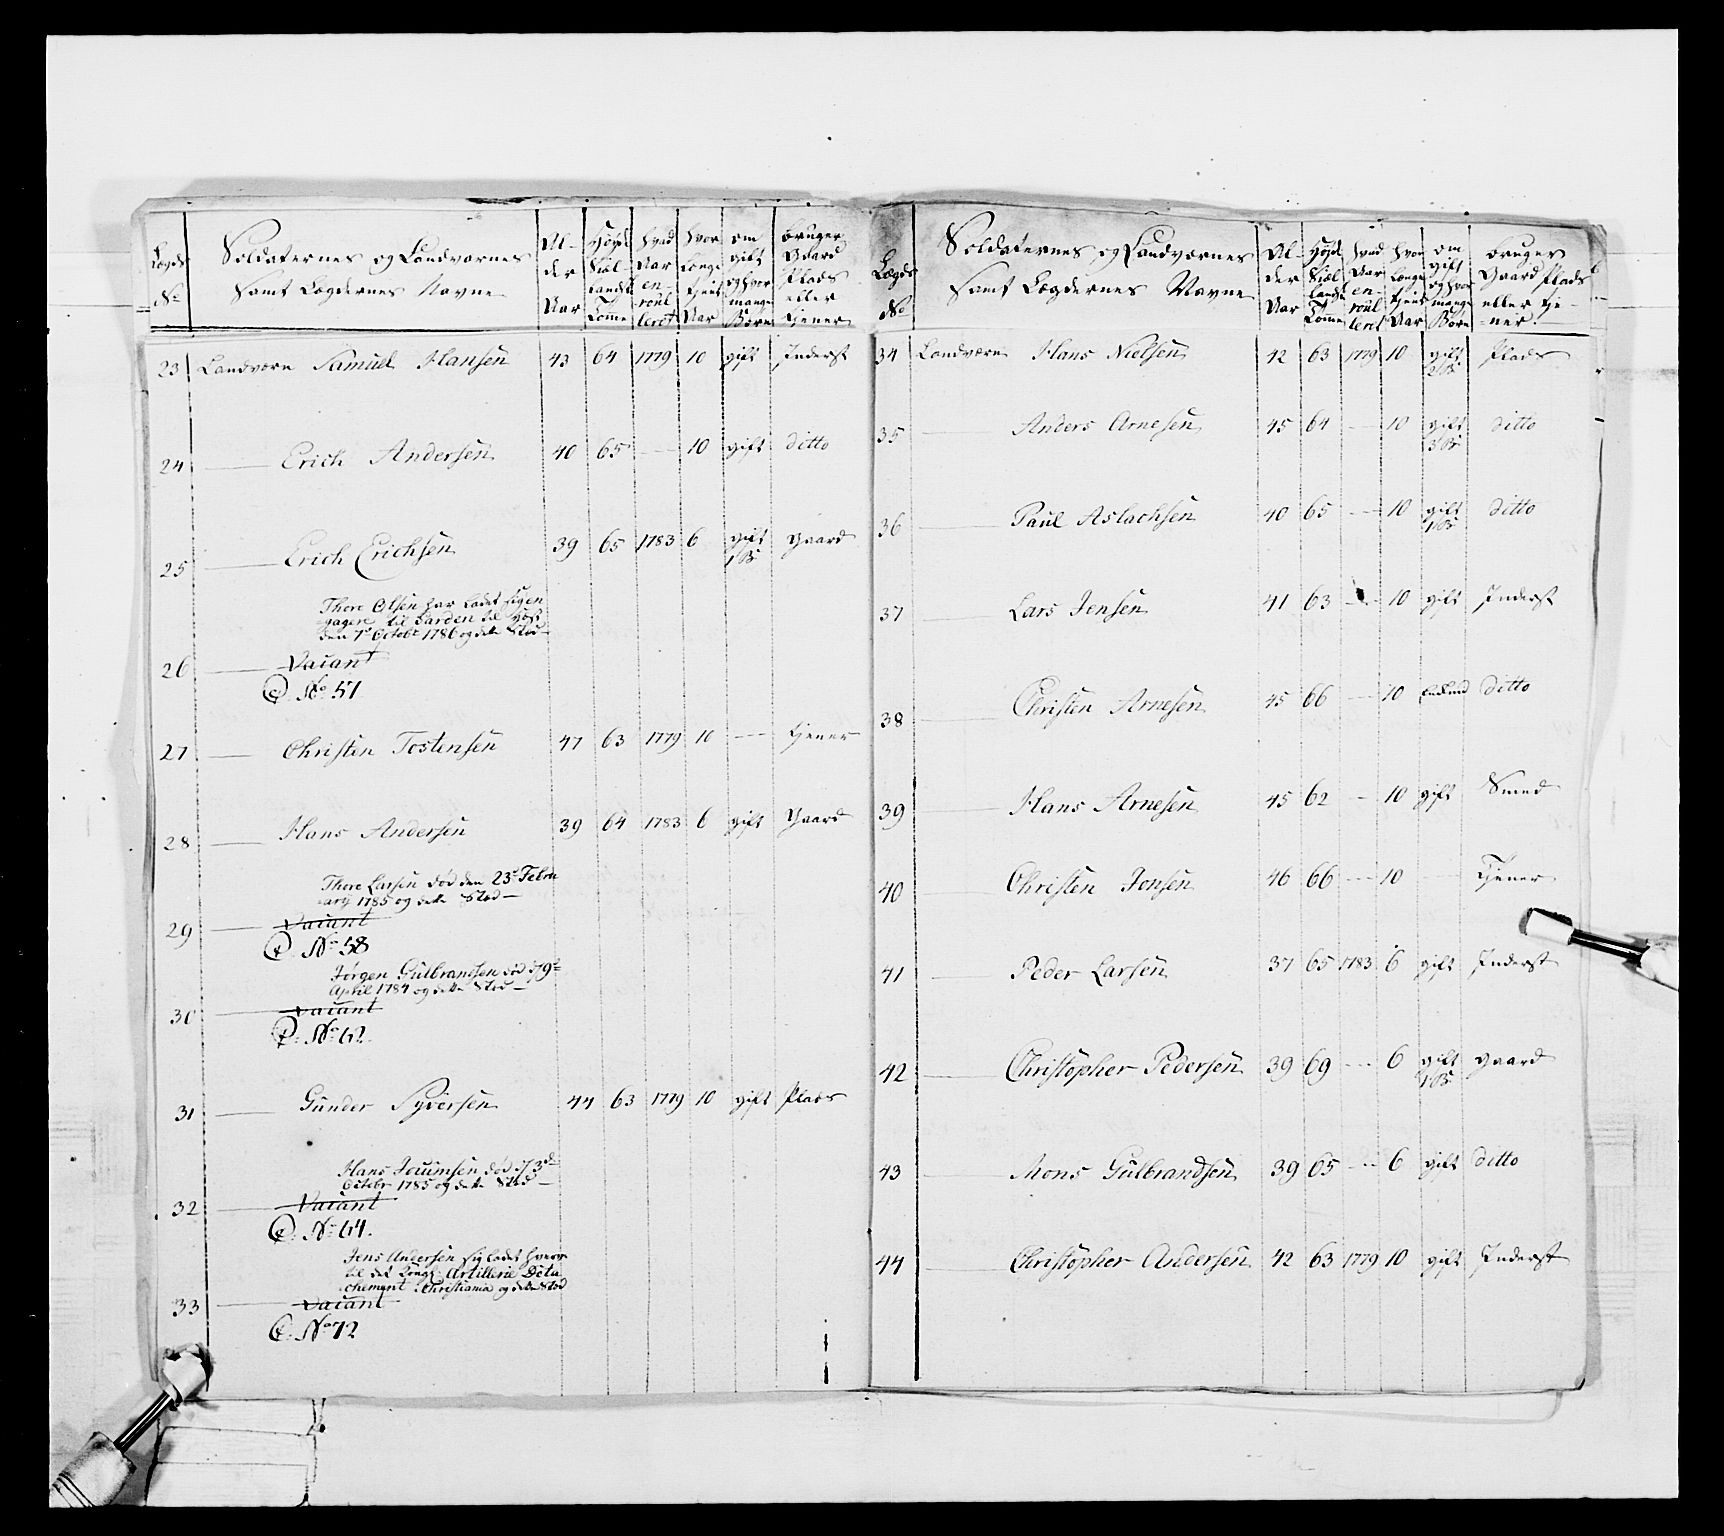 Lægds No
Soldaternes og Landværnes samt Lægdernes Navne
Al-der Aar
Høyde Siæl-landsk Tomme
hvad Aar en-roul leret
hvor Længe tient Aar
om gift og hvor mange Børn
bruger Gaard Plads eller tiener
23 Landværn Samuel Hansen 43 64 1779 10 gift Inderst
24 Erich Andersen 40 65 10 gift ditto
25 Erich Erichsen 39 65 1783 6 gift 1 B: gaard
Thore Olsen har ladet sig en
gagere til Garden til
den 7de Octobr 1786 og dette Sted
26 Vacant
No 57
27 Christen Tostensen 47 63 1779 10 tjener
28 Hans Andersen 39 64 1783 6 gift Gaard
Thore Larsen død den 23de Febru
ary 1785 og dette Sted
29 Vacant
No 58
Jørgen Gulbrandsen død d: 9de
April 1784 og dette Sted
30 Vacant
No 62
31 Gunder Syversen 44 63 1779 10 gift Plads
Hans Joumsen død d: 3de
Octobr 1785 og dette Sted
32 Vacant
No 64.
Jens Andersen sig ladet hverve
til det Kongl: Artillerie Deta
chement Christiania og dette Sted
33 Vacant
No 72
Lægds No
Soldaternes og Landværnes samt Lægdernes Navne
Al-der Aar
Høyde Siæl-landsk Tomme
hvad Aar en-roul leret
hvor Længe tient Aar
om gift og hvor mange Børn
bruger Gaard Plads eller tie-ner
34 Landværn Hans Nielsen 42 63 1779 10 gift 2 B: Plads
35 Anders Arnesen 45 64 10 gift 3 B: ditto
36 Paul Aslachsen 40 65 10 gift 1 B: ditto
37 Lars Jensen 41 63 10 gift Inderst
38 Christen Arnesen 45 66 10 ditto
39 Hans Arnesen 45 62 10 gift Smed
40 Christen Jonsen 46 66 10 Tjener
41 Peder Larsen 37 65 1783 6 gift Inderst
42 Christopher Pedersen 39 69 6 gift 1 B: gaard
43 Mons Gulbrandsen 39 65 6 gift ditto
44 Christopher Andersen 42 63 1779 10 gift Inderst